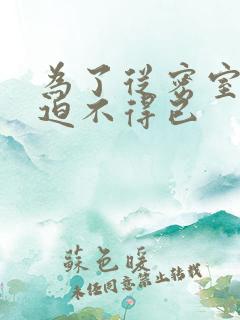 為了從密室
迫不得已
蘇色暖
未经同意禁止转载